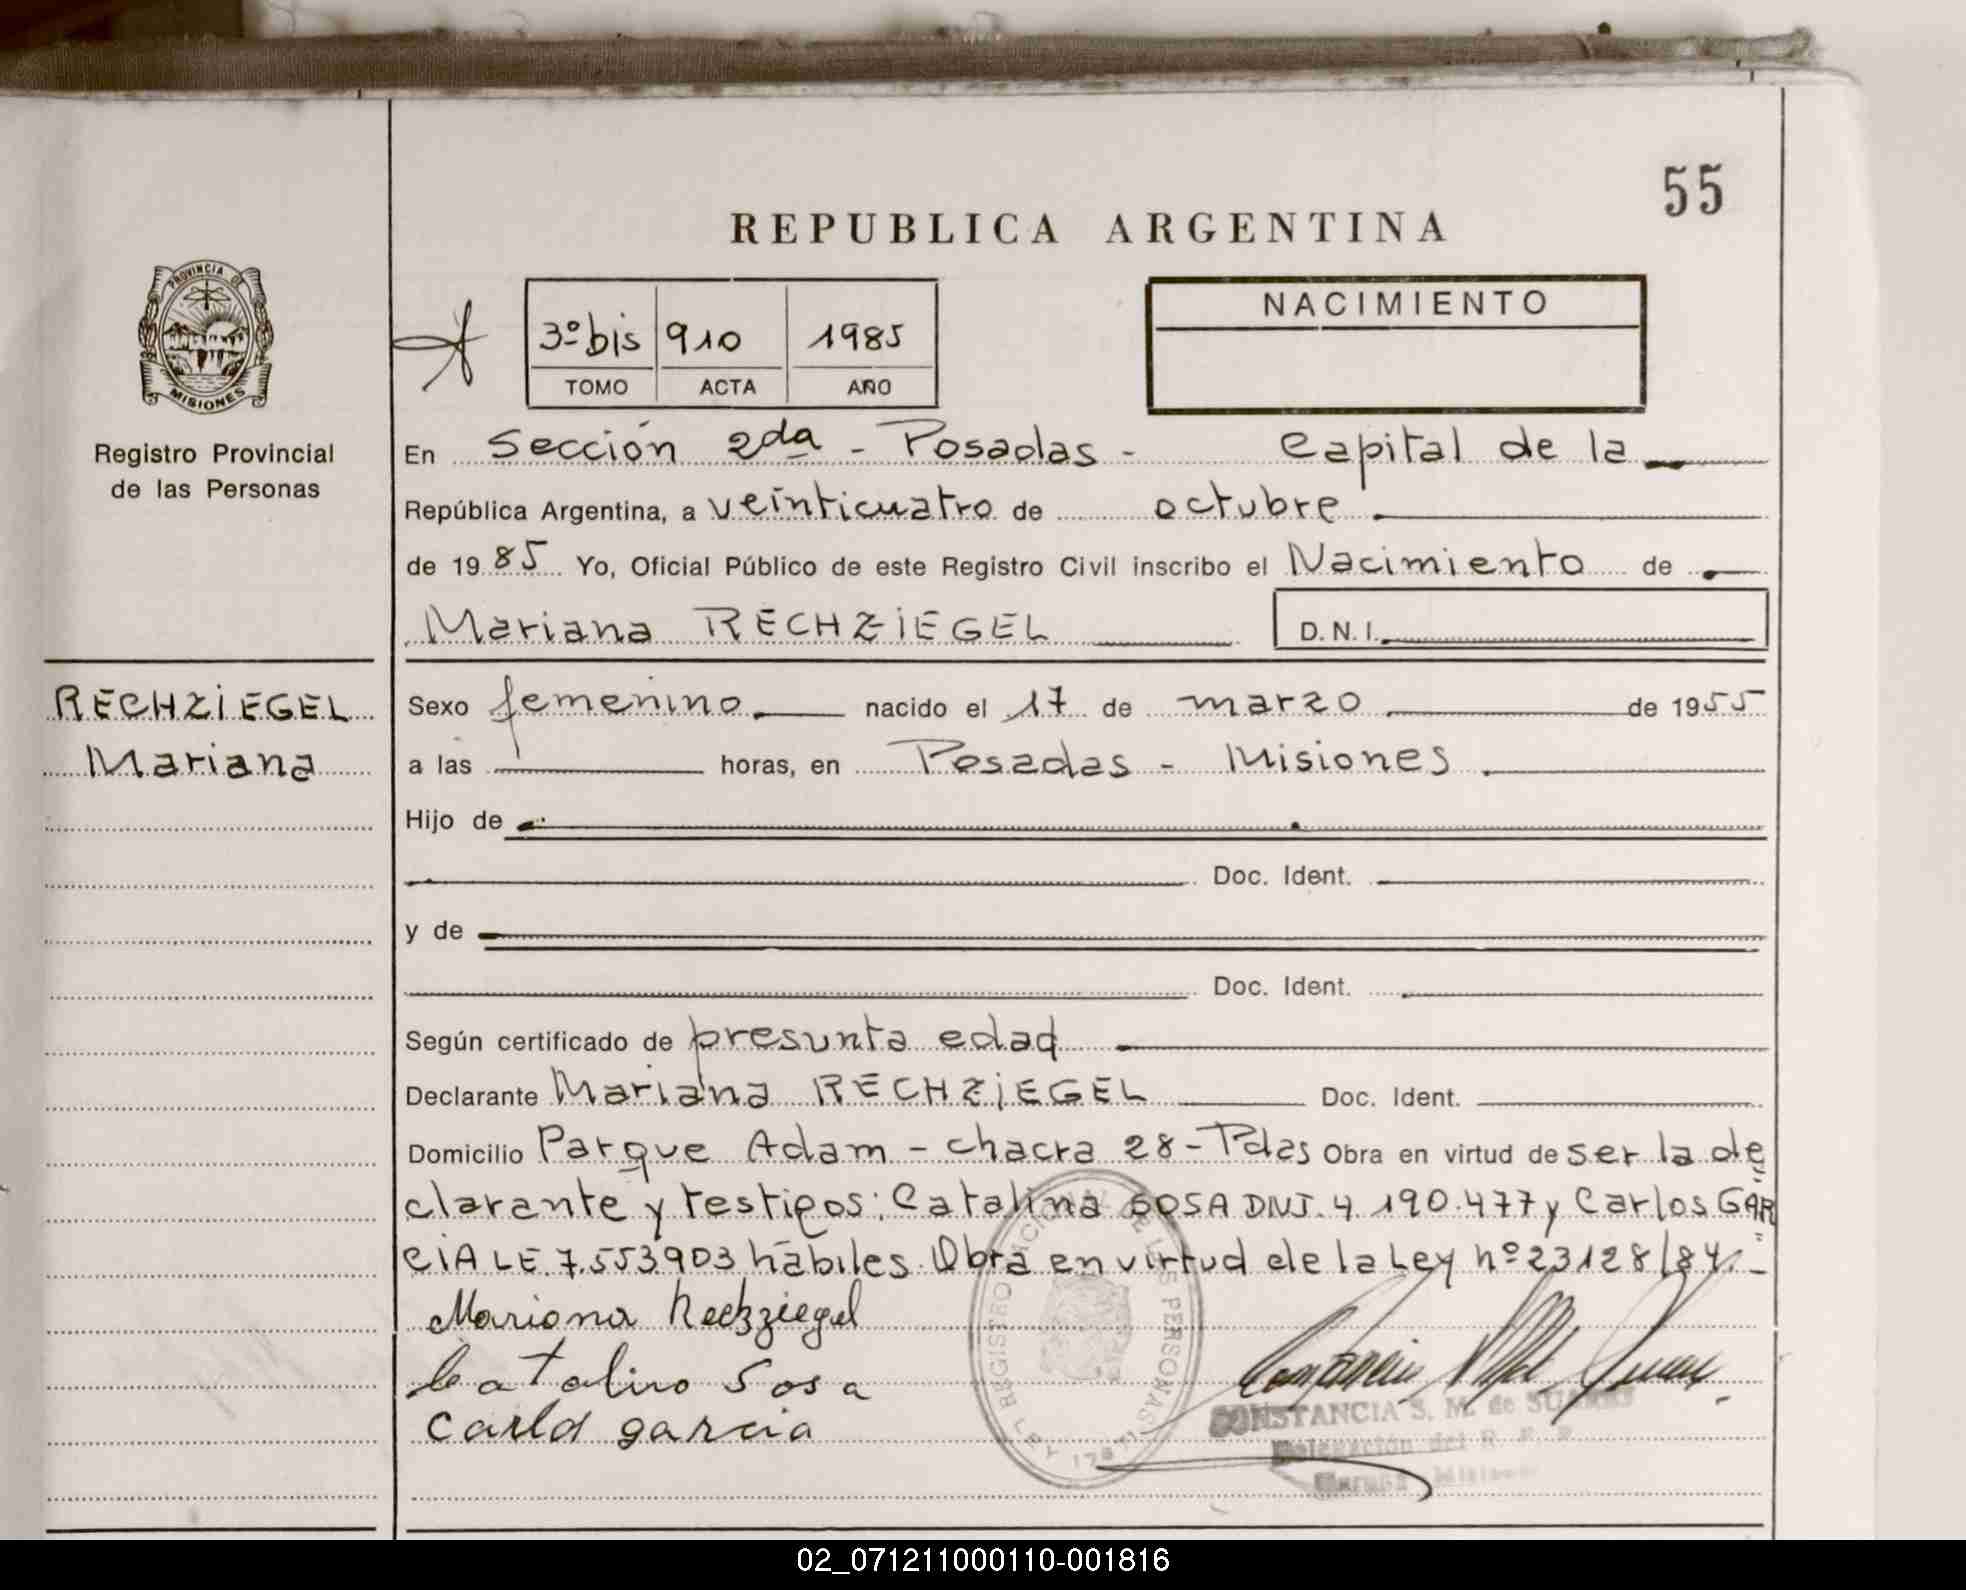 55
REPUBLICA ARGENTINA
PROVINCIA DE
MISIONES
Registro Provincial
de las Personas
3º bis 910 1985
TOMO ACTA AÑO
NACIMIENTO
En Sección 2da - Posadas - Capital de la
República Argentina, a veinticuatro de octubre
de 1985 Yo, Oficial Público de este Registro Civil inscribo el Nacimiento de
Mariana RECHZIEGEL D.N.I.
RECHZIEGEL
Mariana
Sexo femenino nacido el 17 de marzo de 1955
a las horas, en Posadas - Misiones
Hijo de
Doc. Ident.
y de
Doc. Ident.
Según certificado de presunta edad
Declarante Mariana RECHZIEGEL Doc. Ident.
Domicilio Parque Adam - chacra 28 - Pdas Obra en virtud de ser la de
clarante y testigos: Catalina SOSA DNI. 4 190.477 y Carlos GAR
CIA LE. 7.553903 hábiles. Obra en virtud de la Ley nº 23128/84. -
Mariana Rechziegel
Catalina Sosa
Carlos garcia
REGISTRO NACIONAL DE LAS PERSONAS
LEY 17671
CONSTANCIA S. M. de SUARES
Delegación del R. P. P.
02_071211000110-001816